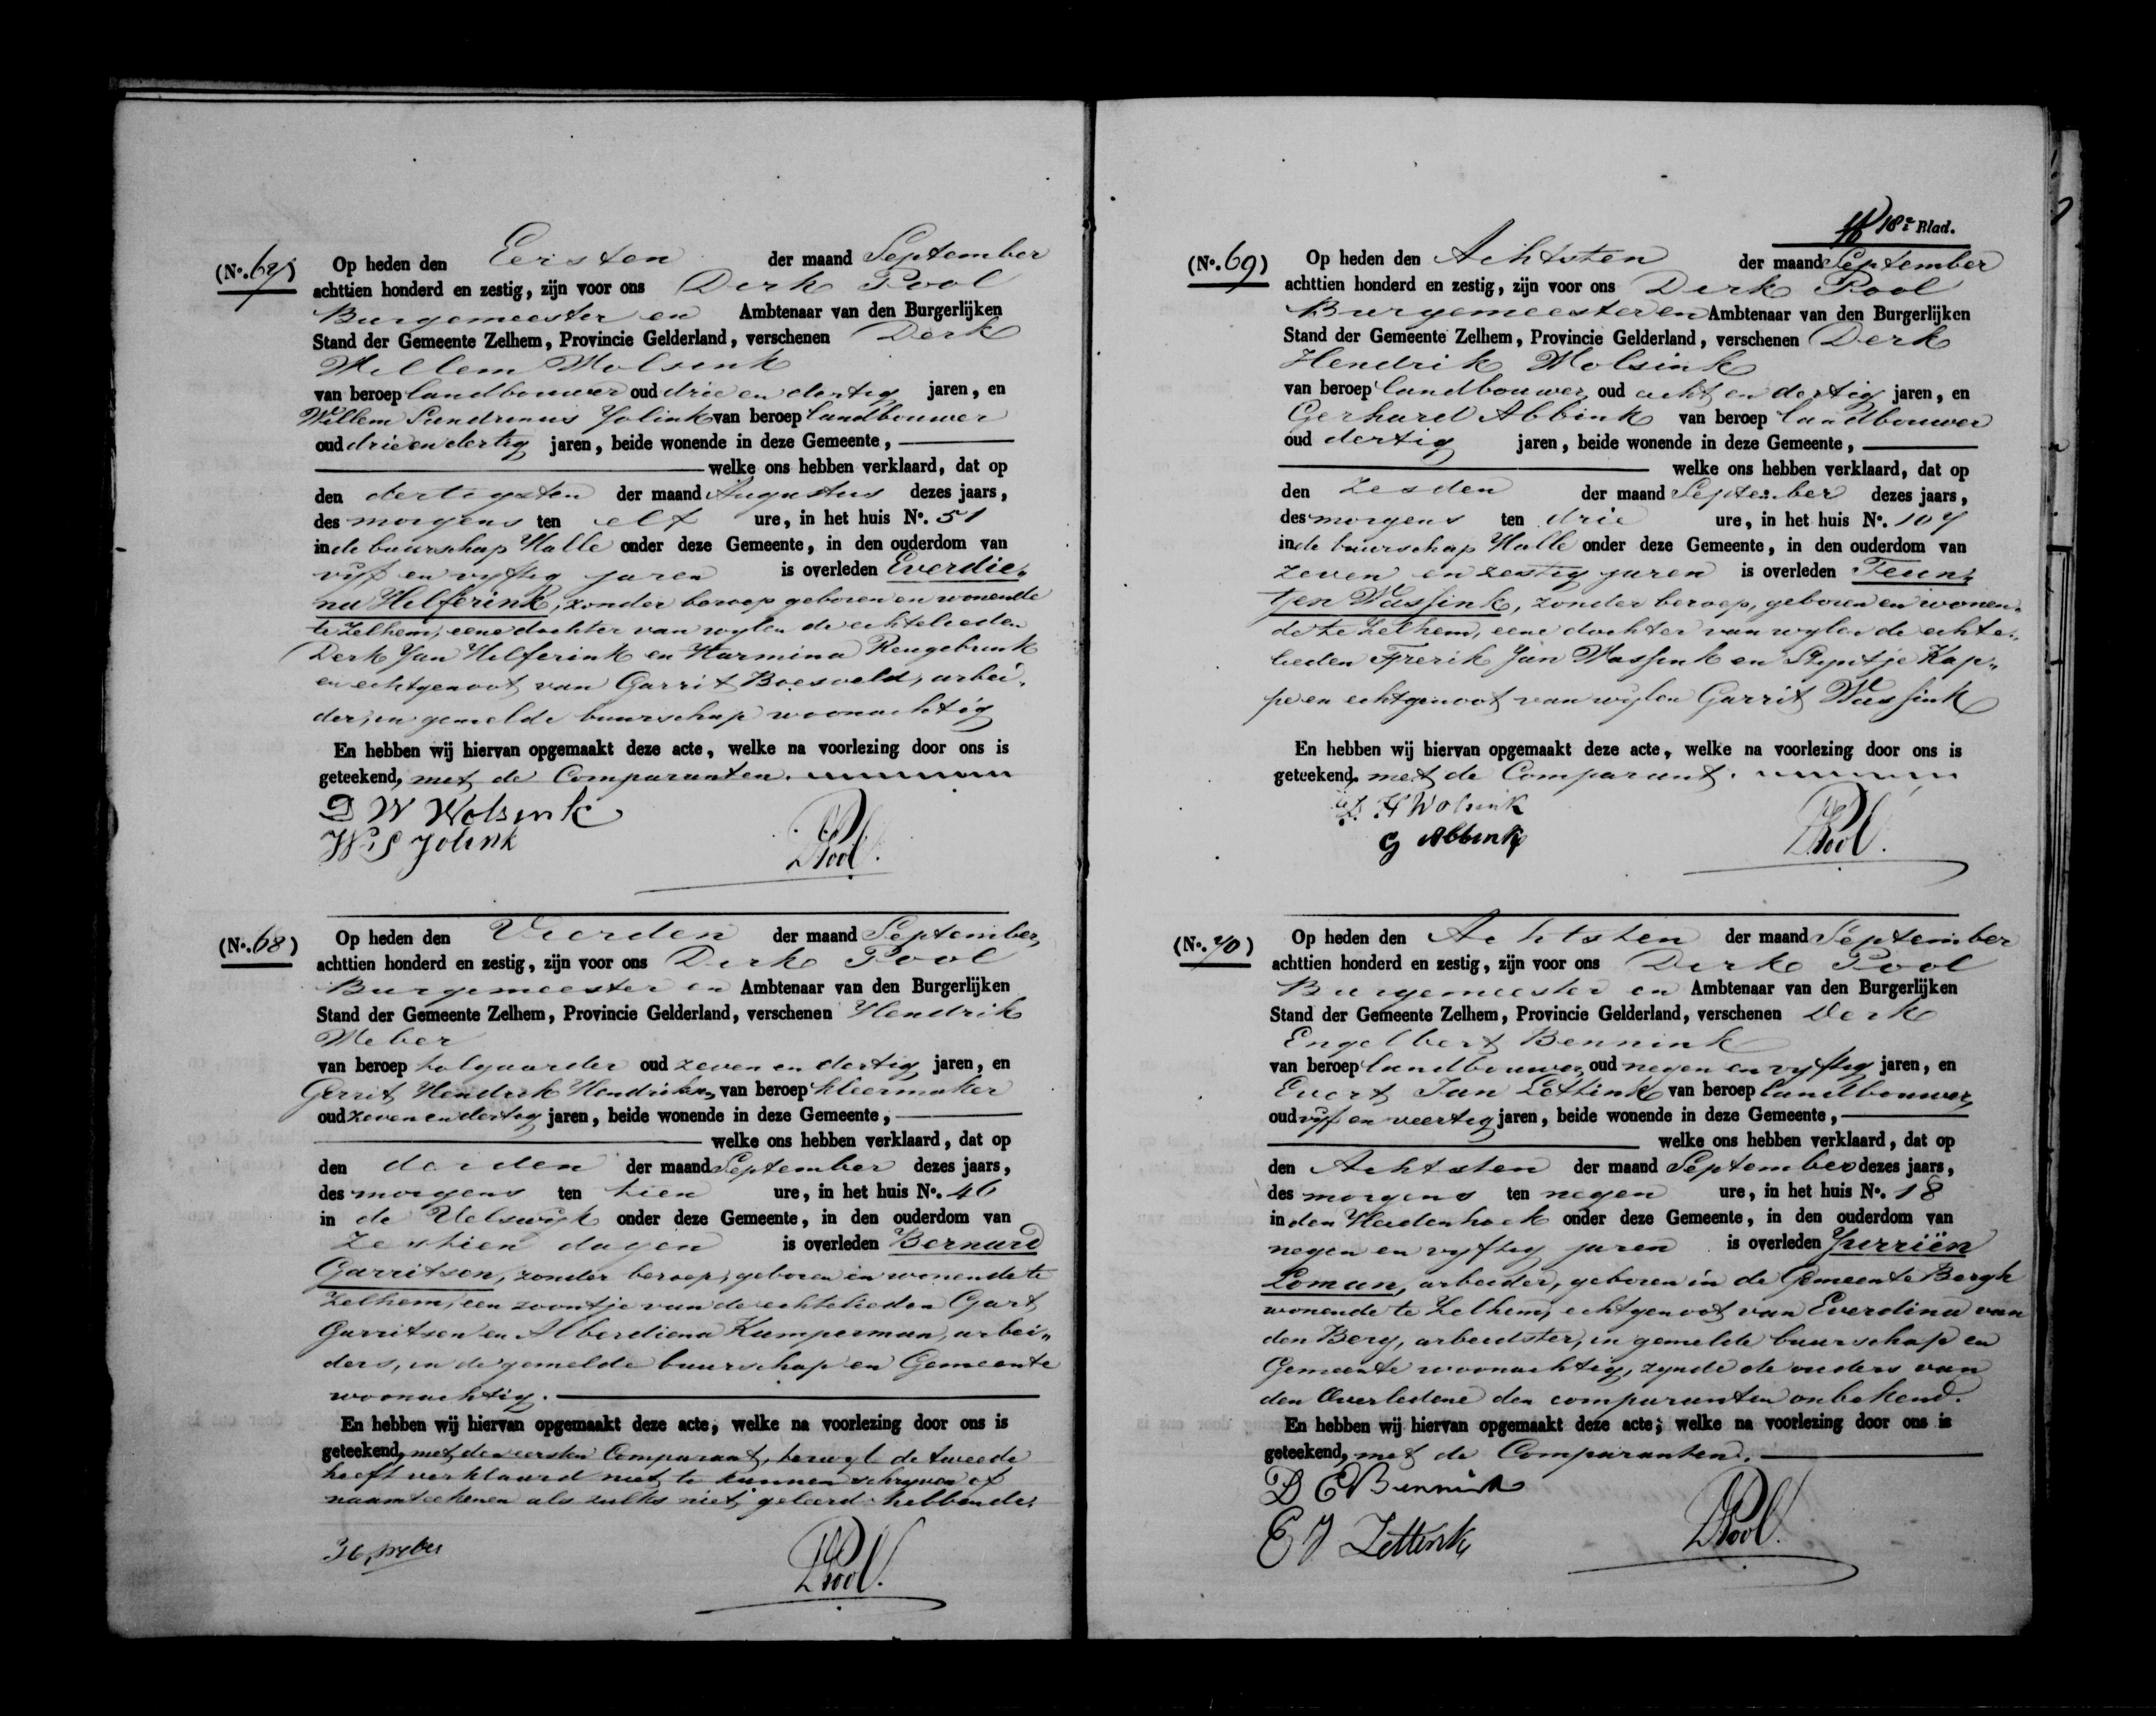 (No. 67) Op heden den Eersten der maand September
achttien honderd en zestig, zijn voor ons Derk Pool
Burgemeester en Ambtenaar van den Burgerlijken
Stand der Gemeente Zelhem, Provincie Gelderland, verschenen Derk
Willem Wolsink
van beroep landbouwer oud drie en dertig jaren, en
Willem Jolink van beroep landbouwer
oud drie en dertig jaren, beide wonende in deze Gemeente,
welke ons hebben verklaard, dat op
den dertigsten der maand Augustus dezes jaars,
des morgens ten elf ure, in het huis No. 51
in de buurschap Halle onder deze Gemeente, in den ouderdom van
vijf en vyftig jaren is overleden Everdie„
na Helferink, zonder beroep geboren en wonende
te Zelhem, eene dochter van wylen de echtelieden
Derk Jan Helferink en Harmina
en echtgenoot van Garrit Boesveld, arbei„
der, in gemelde buurschap woonachtig
En hebben wij hiervan opgemaakt deze acte, welke na voorlezing door ons is
geteekend, met de Comparanten.
D W Wolsink
W S Jolink
DPool.
(No. 68) Op heden den Vierden der maand September,
achttien honderd en zestig, zijn voor ons Derk Pool
Burgemeester en Ambtenaar van den Burgerlijken
Stand der Gemeente Zelhem, Provincie Gelderland, verschenen Hendrik
Weber
van beroep tolgaarder oud zeven en dertig jaren, en
Gerrit Hendrik Hendriksen van beroep kleermaker
oud zeven en dertig jaren, beide wonende in deze Gemeente,
welke ons hebben verklaard, dat op
den derden der maand September dezes jaars,
des morgens ten tien ure, in het huis No. 46
in de Velswyk onder deze Gemeente, in den ouderdom van
zestien dagen is overleden Bernard
Garritsen, zonder beroep, geboren en wonende te
Zelhem, een zoontje van de echtelieden Gart
Garritsen en Alberdiena Kamperman, arbei„
ders, in de gemelde buurschap en Gemeente
woonachtig.
En hebben wij hiervan opgemaakt deze acte, welke na voorlezing door ons is
geteekend, met den eersten Comparant, terwyl de tweede
heeft verklaard niet te kunnen schryven of
naamteekenen als zulks niet geleerd hebbende.
H Weber
DPool.
18e Blad.
(No. 69) Op heden den Achtsten der maand September
achttien honderd en zestig, zijn voor ons Derk Pool
Burgemeester en Ambtenaar van den Burgerlijken
Stand der Gemeente Zelhem, Provincie Gelderland, verschenen Derk
Hendrik Wolsink
van beroep landbouwer oud acht en dertig jaren, en
Gerhard Abbink van beroep landbouwer
oud dertig jaren, beide wonende in deze Gemeente,
welke ons hebben verklaard, dat op
den zesden der maand September dezes jaars,
des morgens ten drie ure, in het huis No. 107
in de buurschap Halle onder deze Gemeente, in den ouderdom van
zeven en zestig jaren is overleden Teun„
tjen Wassink, zonder beroep, geboren en wonen„
de te Zelhem, eene dochter van wylen de echte„
lieden Frerik Jan Wassink en Styntje Kap„
pe en echtgenoot van wylen Garrit Wassink
En hebben wij hiervan opgemaakt deze acte, welke na voorlezing door ons is
geteekend, met de Comparant.
D H Wolsink
G Abbink
DPool.
(No. 70) Op heden den Achtsten der maand September
achttien honderd en zestig, zijn voor ons Derk Pool
Burgemeester en Ambtenaar van den Burgerlijken
Stand der Gemeente Zelhem, Provincie Gelderland, verschenen Derk
Engelbert Bennink
van beroep landbouwer, oud negen en vyftig jaren, en
Evert Jan Lettink van beroep landbouwer,
oud vijf en veertig jaren, beide wonende in deze Gemeente,
welke ons hebben verklaard, dat op
den Achtsten der maand September dezes jaars,
des morgens ten negen ure, in het huis No. 18
in den Heidenhoek onder deze Gemeente, in den ouderdom van
negen en vyftig jaren is overleden Jurriën
Loman, arbeider, geboren in de Gemeente Bergh
wonende te Zelhem, echtgenoot van Everdina van
den Berg, arbeidster, in gemelde buurschap en
Gemeente woonachtig, zynde de ouders van
den Overledene den comparanten onbekend.
En hebben wij hiervan opgemaakt deze acte, welke na voorlezing door ons is
geteekend, met de Comparanten.
D E Bennink
E J Lettink
DPool.